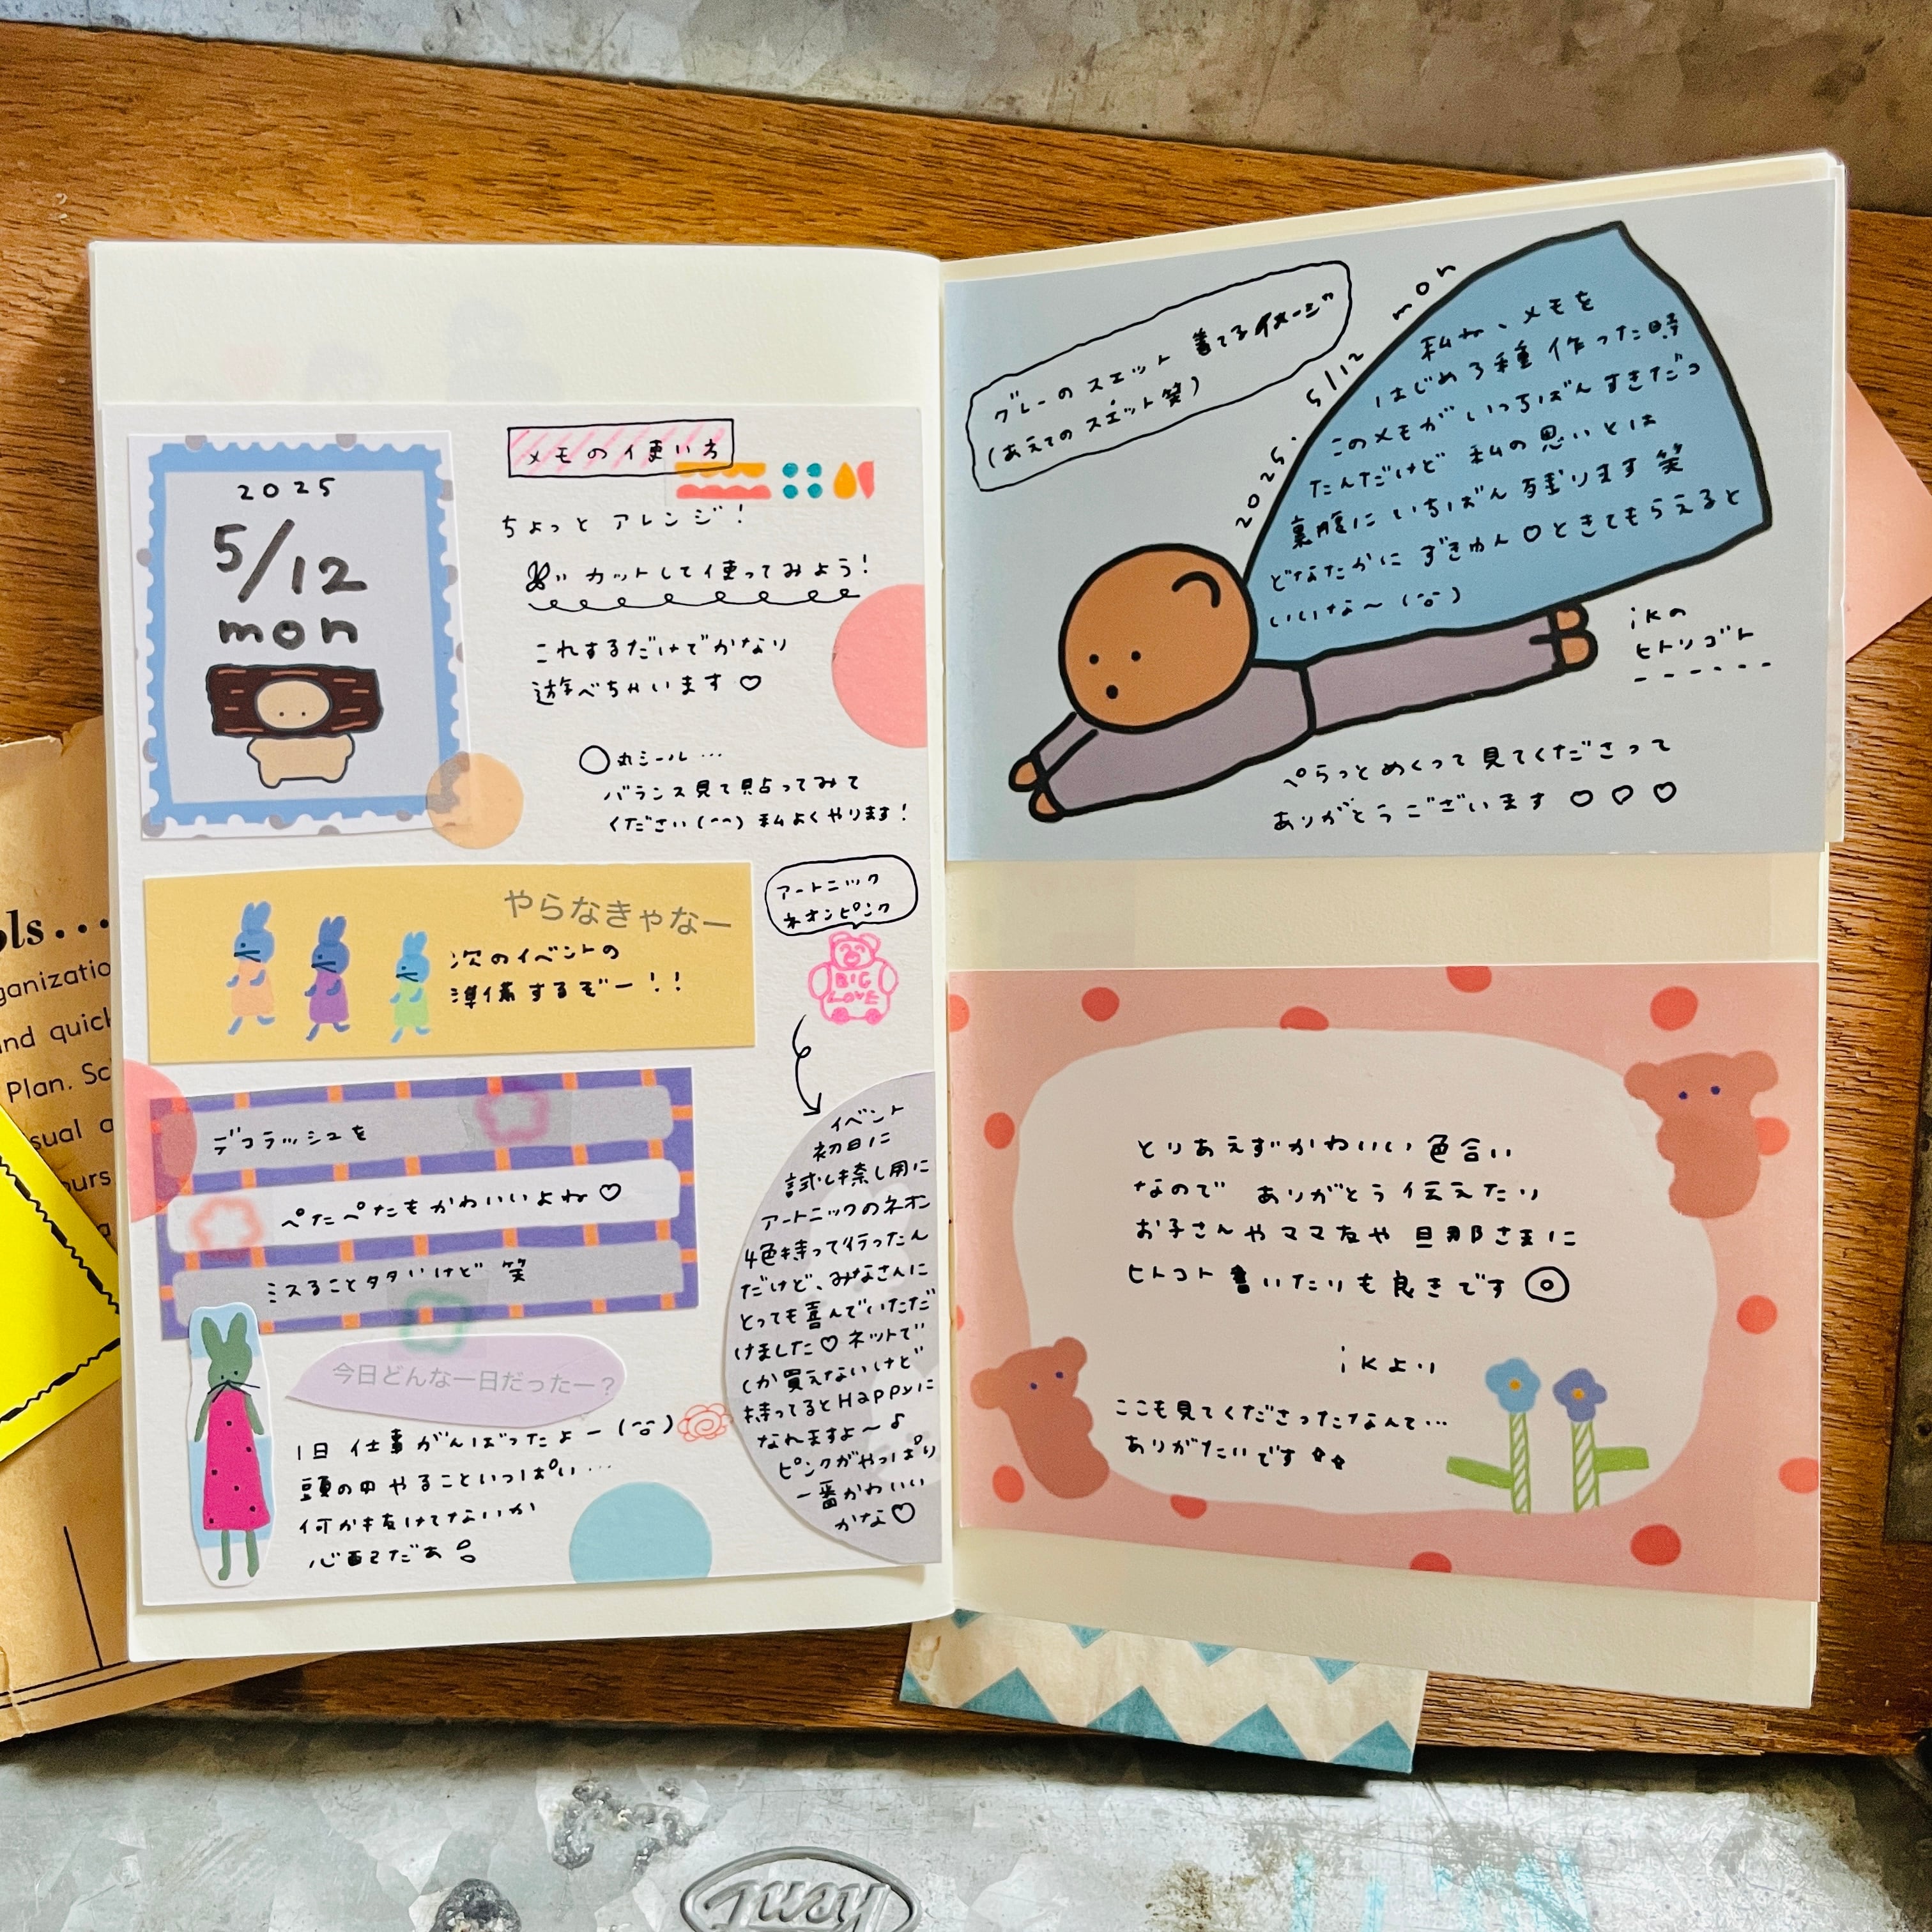 2025
5/12
mon
メモの使い方
ちょっと アレンジ!
カットして使ってみよう!
これするだけでかなり
遊べちゃいます♡
○丸シール…
バランス見て貼ってみて
ください(^^) 私よくやります!
やらなきゃなー
次のイベントの
準備するぞー!!
アートニック
ネオンピンク
BIG
LOVE
デコラッシュを
ぺたぺたもかわいいよね♡
ミスること多タいけど 笑
今日どんな一日だったー?
1日 仕事がんばったよー
頭の中やることいっぱい…
何か抜けてないか
心配だあ
イベント
初日に
試し書き用に
アートニックのネオン
4色持って行ったん
だけど、みなさんに
とっても喜んでいただ
けました♡ ネットで
しか買えないけど
持ってるとHappyに
なれますよ〜♪
ピンクがやっぱり
一番かわいい
かな♡
グレーのスエット 着てるイメージ
(あえてのスエット笑)
2025. 5/12 mon
私ね、メモを
はじめ3種作った時
このメモがいっちばんすきだっ
たんだけど 私の思いとは
裏腹に いちばん残ります 笑
どなたかに ずきゅん♡ときてもらえると
いいな〜
ikの
ヒトリゴト
ぺらっとめくって見てくださって
ありがとうございます ♡♡♡
とりあえずかわいい色合い
なので ありがとう伝えたり
お子さんやママ友や 旦那さまに
ヒトコト書いたりも良きです
ikより
ここも見てくださったなんて…
ありがたいです
ols...
ganizatio
nd quick
Plan. Sc
sual a
ours